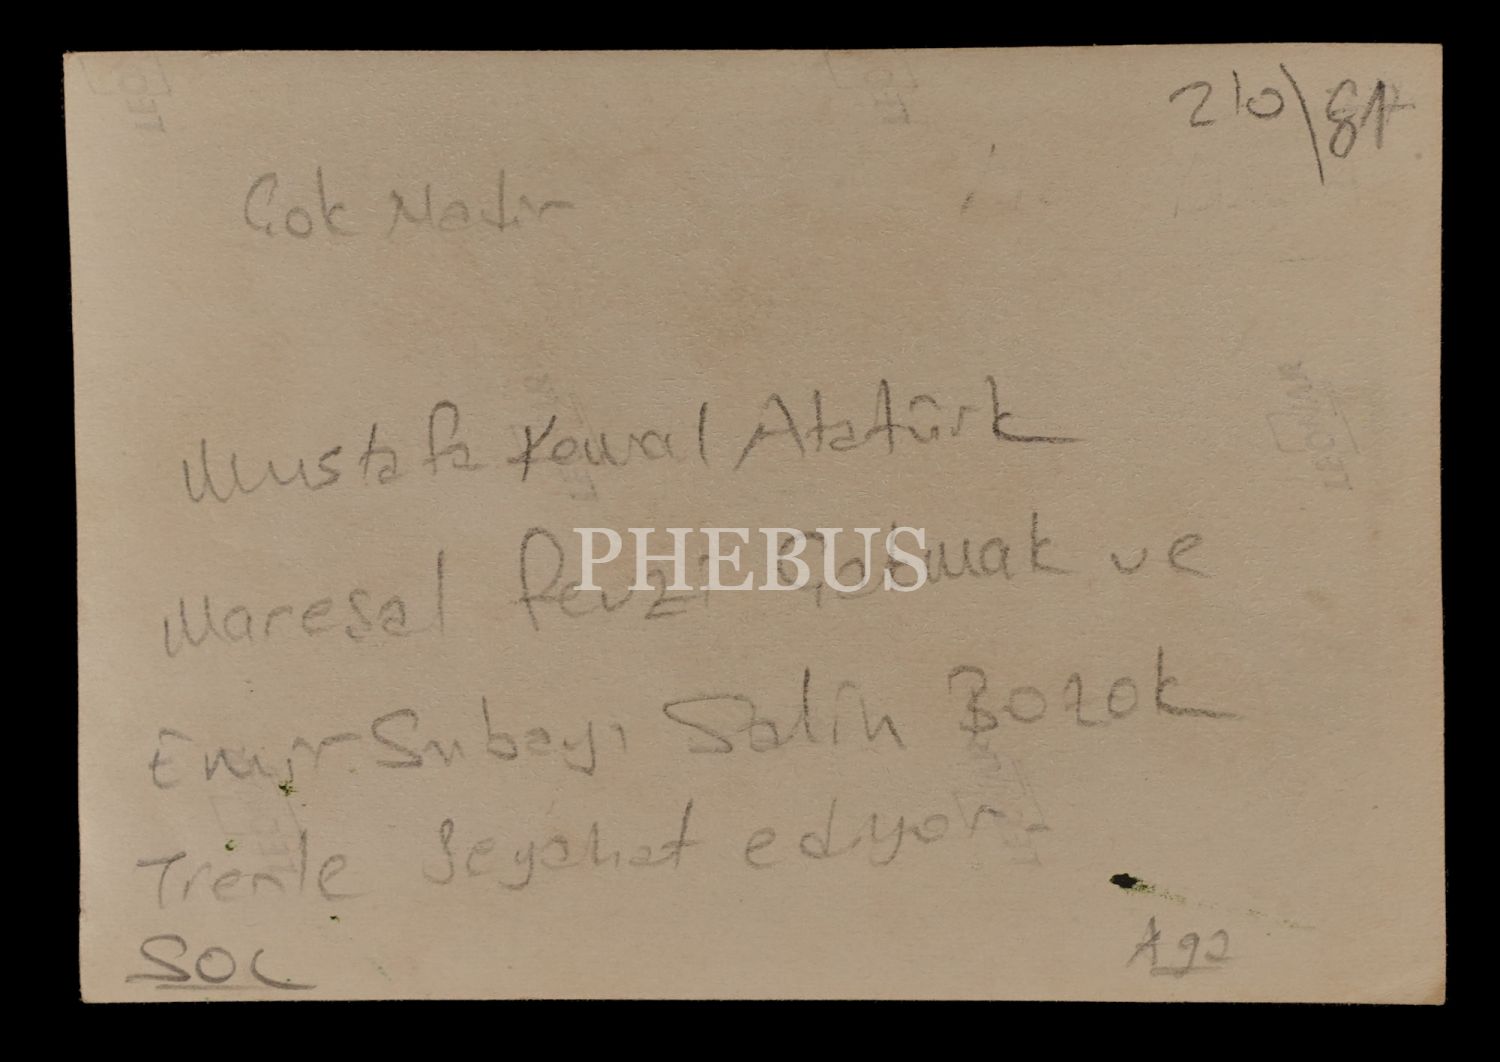 210\
Çok Nadir
Mustafa Kemal Atatürk
Mareşal Fevzi Çakmak ve
PHEBUS
Emir Subayı Salih Bozok
Trenle Seyahat ediyor.